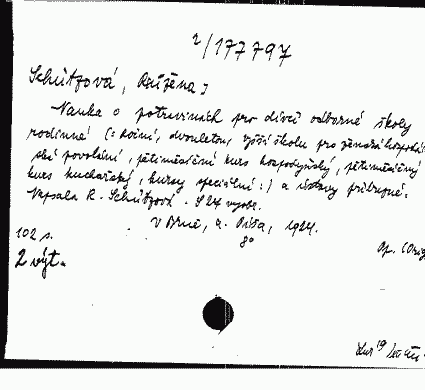 2/177797
Schützová, Růžena,
Nauka o potravinách pro dívčí odborné školy
rodinné (: roční, dvouletou, vyšší školu pro ženská hospodář-
ská povolání, pětiměsíční kurs hospodyňský, pětiměsíčný
kurs kuchařský, kursy speciální :) a ústavy příbuzné.
Napsala R. Schützová. S 24 vyobr.
V Brně, A. Píša, 1924.
102 s. 8°
2 výt. Op. (Orig